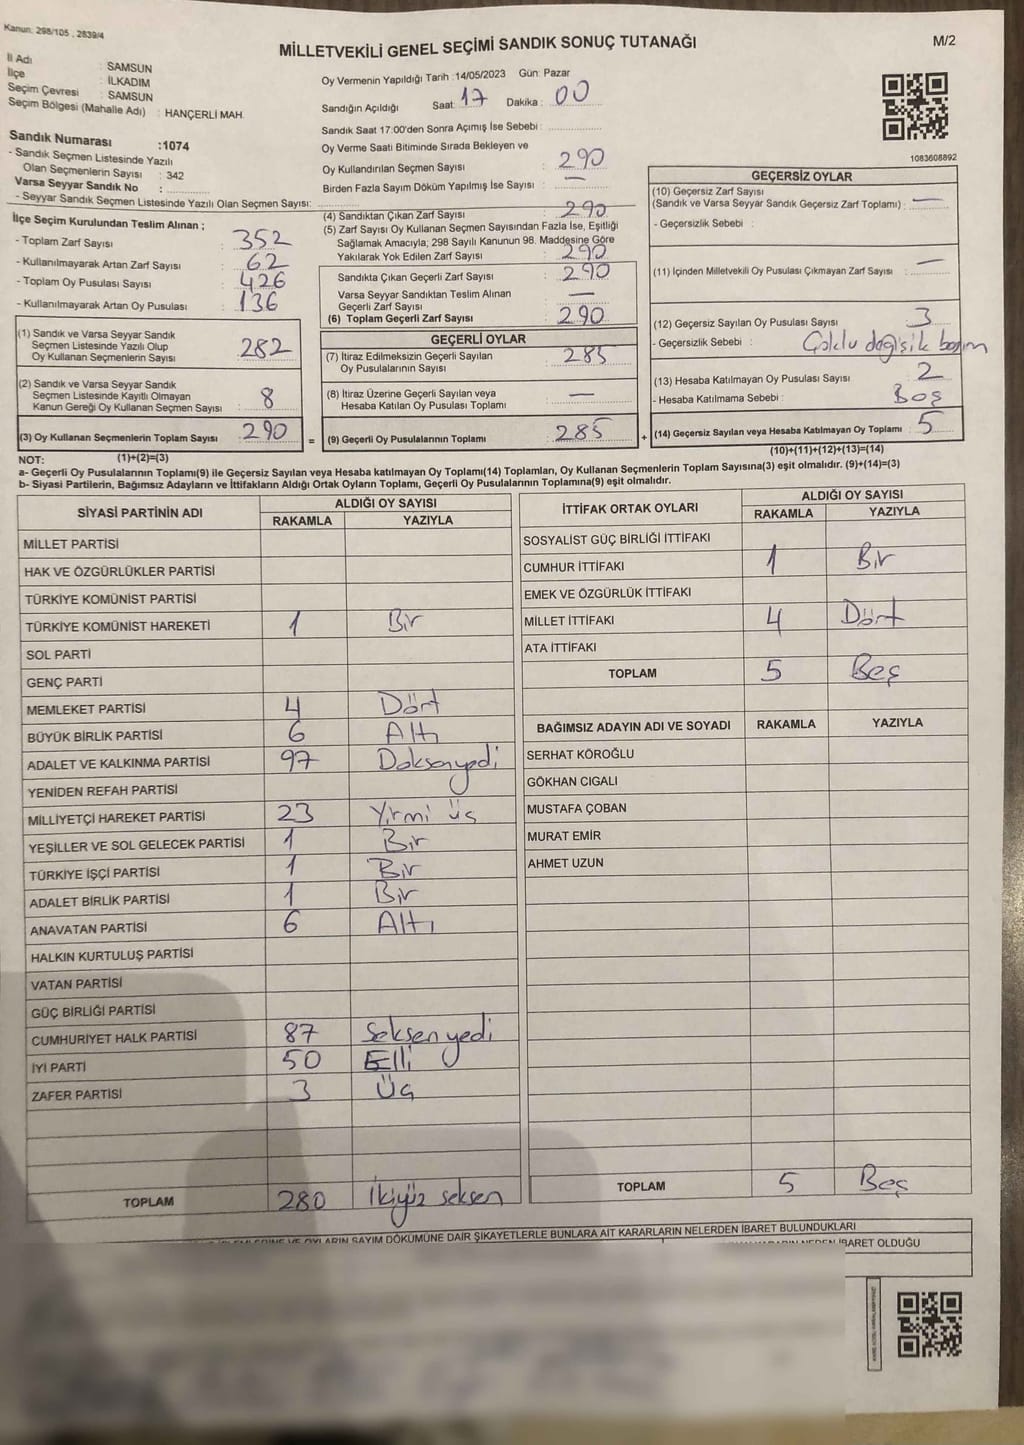 Kanun: 298/105 , 2839/4
MİLLETVEKİLİ GENEL SEÇİMİ SANDIK SONUÇ TUTANAĞI
M/2
İl Adı : SAMSUN
İlçe : İLKADIM
Seçim Çevresi : SAMSUN
Seçim Bölgesi (Mahalle Adı) : HANÇERLİ MAH.
Sandık Numarası :1074
- Sandık Seçmen Listesinde Yazılı
Olan Seçmenlerin Sayısı : 342
Varsa Seyyar Sandık No :
- Seyyar Sandık Seçmen Listesinde Yazılı Olan Seçmen Sayısı:
Oy Vermenin Yapıldığı Tarih :14/05/2023 Gün: Pazar
Sandığın Açıldığı Saat: 17 Dakika : 00
Sandık Saat 17:00'den Sonra Açımış İse Sebebi :
Oy Verme Saati Bitiminde Sırada Bekleyen ve
Oy Kullandırılan Seçmen Sayısı : 290
Birden Fazla Sayım Döküm Yapılmış İse Sayısı : —
1083608892
İlçe Seçim Kurulundan Teslim Alınan ;
- Toplam Zarf Sayısı : 352
- Kullanılmayarak Artan Zarf Sayısı : 62
- Toplam Oy Pusulası Sayısı : 426
- Kullanılmayarak Artan Oy Pusulası : 136
(1) Sandık ve Varsa Seyyar Sandık
Seçmen Listesinde Yazılı Olup
Oy Kullanan Seçmenlerin Sayısı : 282
(2) Sandık ve Varsa Seyyar Sandık
Seçmen Listesinde Kayıtlı Olmayan
Kanun Gereği Oy Kullanan Seçmen Sayısı : 8
(3) Oy Kullanan Seçmenlerin Toplam Sayısı : 290
(4) Sandıktan Çıkan Zarf Sayısı : 290
(5) Zarf Sayısı Oy Kullanan Seçmen Sayısından Fazla İse, Eşitliği
Sağlamak Amacıyla; 298 Sayılı Kanunun 98. Maddesine Göre
Yakılarak Yok Edilen Zarf Sayısı : 290
Sandıkta Çıkan Geçerli Zarf Sayısı : 290
Varsa Seyyar Sandıktan Teslim Alınan
Geçerli Zarf Sayısı : —
(6) Toplam Geçerli Zarf Sayısı : 290
GEÇERLİ OYLAR
(7) İtiraz Edilmeksizin Geçerli Sayılan
Oy Pusulalarının Sayısı : 285
(8) İtiraz Üzerine Geçerli Sayılan veya
Hesaba Katılan Oy Pusulası Toplamı : —
= (9) Geçerli Oy Pusulalarının Toplamı : 285
GEÇERSİZ OYLAR
(10) Geçersiz Zarf Sayısı
(Sandık ve Varsa Seyyar Sandık Geçersiz Zarf Toplamı) : —
- Geçersizlik Sebebi :
(11) İçinden Milletvekili Oy Pusulası Çıkmayan Zarf Sayısı : —
(12) Geçersiz Sayılan Oy Pusulası Sayısı : 3
- Geçersizlik Sebebi : Çoklu değişik basım
(13) Hesaba Katılmayan Oy Pusulası Sayısı : 2
- Hesaba Katılmama Sebebi : Boş
+ (14) Geçersiz Sayılan veya Hesaba Katılmayan Oy Toplamı : 5
NOT: (1)+(2)=(3)
(10)+(11)+(12)+(13)=(14)
a- Geçerli Oy Pusulalarının Toplamı(9) ile Geçersiz Sayılan veya Hesaba katılmayan Oy Toplamı(14) Toplamları, Oy Kullanan Seçmenlerin Toplam Sayısına(3) eşit olmalıdır. (9)+(14)=(3)
b- Siyasi Partilerin, Bağımsız Adayların ve İttifakların Aldığı Ortak Oyların Toplamı, Geçerli Oy Pusulalarının Toplamına(9) eşit olmalıdır.
SİYASİ PARTİNİN ADI
ALDIĞI OY SAYISI
RAKAMLA YAZIYLA
MİLLET PARTİSİ
HAK VE ÖZGÜRLÜKLER PARTİSİ
TÜRKİYE KOMÜNİST PARTİSİ
TÜRKİYE KOMÜNİST HAREKETİ 1 Bir
SOL PARTİ
GENÇ PARTİ
MEMLEKET PARTİSİ 4 Dört
BÜYÜK BİRLİK PARTİSİ 6 Altı
ADALET VE KALKINMA PARTİSİ 97 Doksanyedi
YENİDEN REFAH PARTİSİ
MİLLİYETÇİ HAREKET PARTİSİ 23 Yirmi üç
YEŞİLLER VE SOL GELECEK PARTİSİ 1 Bir
TÜRKİYE İŞÇİ PARTİSİ 1 Bir
ADALET BİRLİK PARTİSİ 1 Bir
ANAVATAN PARTİSİ 6 Altı
HALKIN KURTULUŞ PARTİSİ
VATAN PARTİSİ
GÜÇ BİRLİĞİ PARTİSİ
CUMHURİYET HALK PARTİSİ 87 Seksen yedi
İYİ PARTİ 50 Elli
ZAFER PARTİSİ 3 Üç
TOPLAM 280 İkiyüz seksen
İTTİFAK ORTAK OYLARI
ALDIĞI OY SAYISI
RAKAMLA YAZIYLA
SOSYALİST GÜÇ BİRLİĞİ İTTİFAKI
CUMHUR İTTİFAKI 1 Bir
EMEK VE ÖZGÜRLÜK İTTİFAKI
MİLLET İTTİFAKI 4 Dört
ATA İTTİFAKI
TOPLAM 5 Beş
BAĞIMSIZ ADAYIN ADI VE SOYADI RAKAMLA YAZIYLA
SERHAT KÖROĞLU
GÖKHAN CIGALI
MUSTAFA ÇOBAN
MURAT EMİR
AHMET UZUN
TOPLAM 5 Beş
OYLARIN SAYIM DÖKÜMÜNE DAİR ŞİKAYETLERLE BUNLARA AİT KARARLARIN NELERDEN İBARET BULUNDUKLARI
NEDEN İBARET OLDUĞU